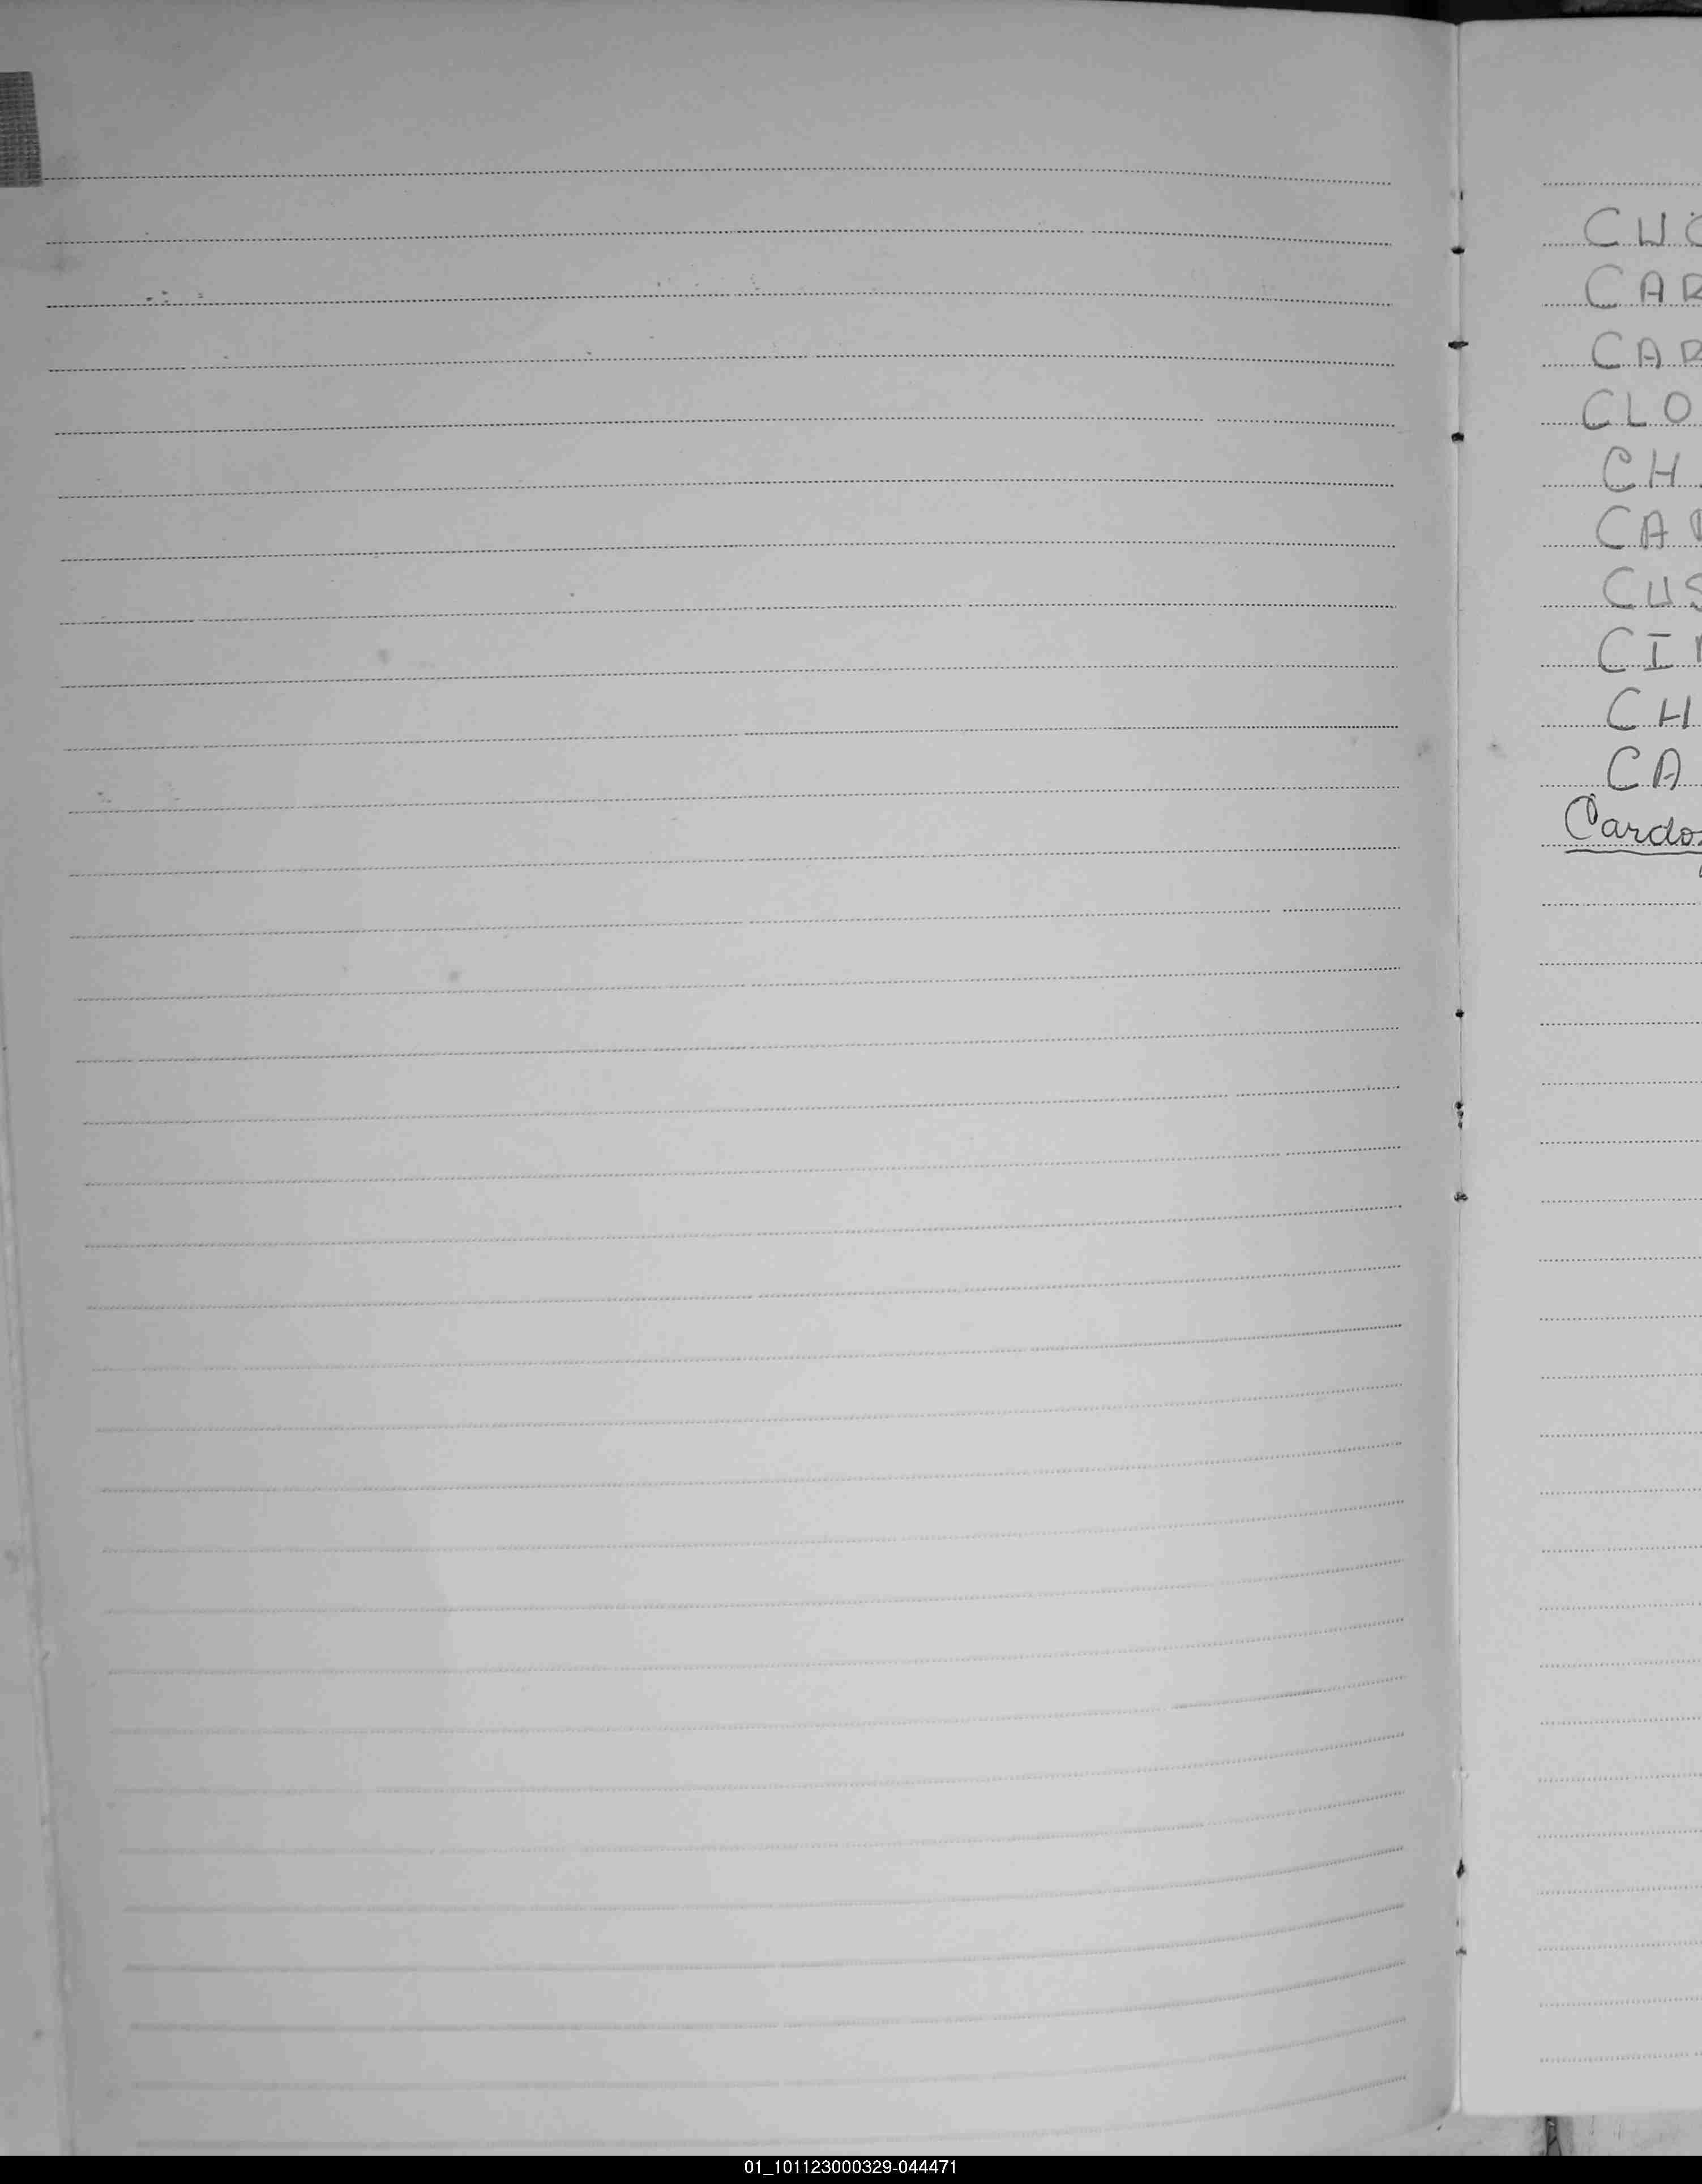 CUC
CAR
CAR
CLO
CH
CA
CUS
CI
CH
CA
Cardo
01_101123000329-044471